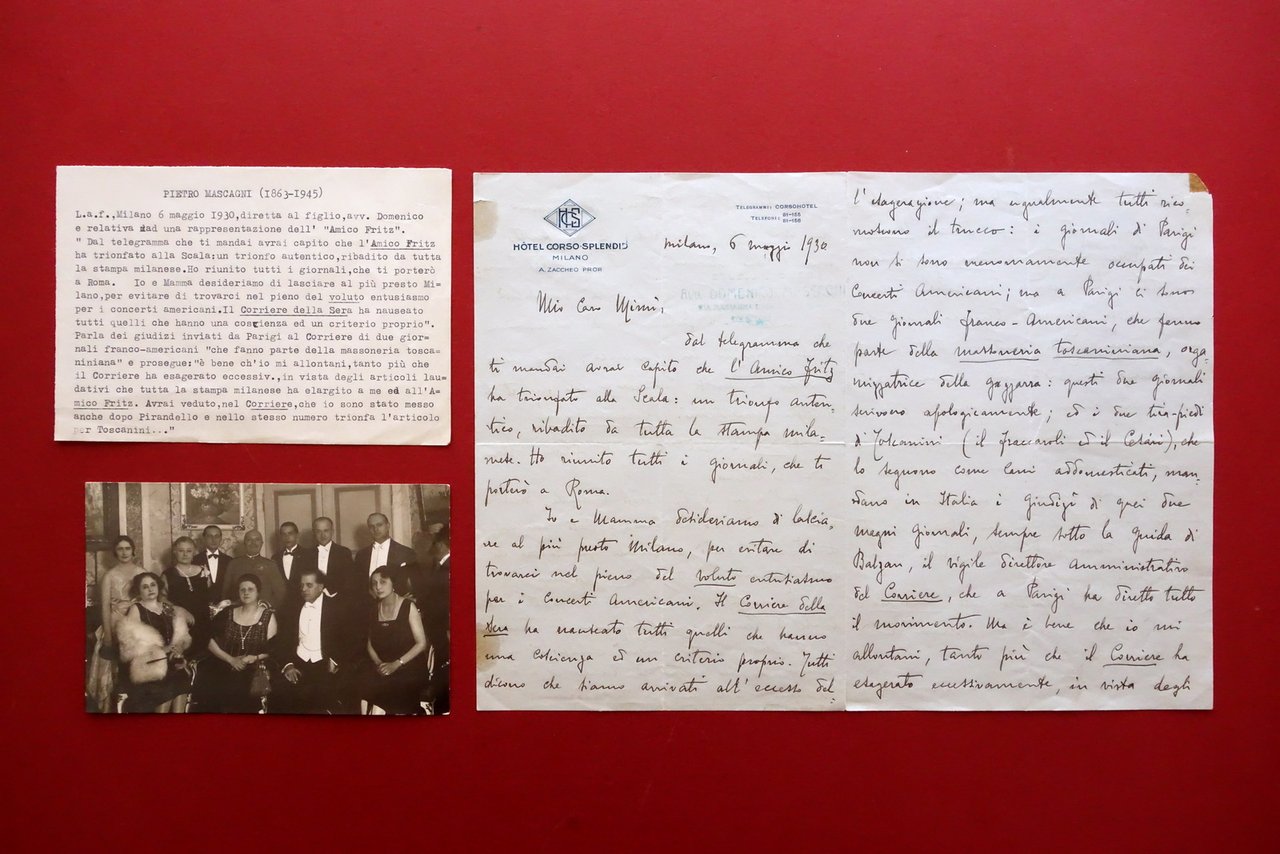 PIETRO MASCAGNI (1863-1945)
L.a.f.,Milano 6 maggio 1930,diretta al figlio,avv. Domenico
e relativa ad una rappresentazione dell' "Amico Fritz".
" Dal telegramma che ti mandai avrai capito che l'Amico Fritz
ha trionfato alla Scala:un trionfo autentico,ribadito da tutta
la stampa milanese.Ho riunito tutti i giornali,che ti porterò
a Roma. Io e Mamma desideriamo di lasciare al più presto Mi=
lano,per evitare di trovarci nel pieno del voluto entusiasmo
per i concerti americani.Il Corriere della Sera ha nauseato
tutti quelli che hanno una coscienza ed un criterio proprio".
Parla dei giudizi inviati da Parigi al Corriere di due gior=
nali franco-americani "che fanno parte della massoneria tosca=
niniana" e prosegue:"è bene ch'io mi allontani,tanto più che
il Corriere ha esagerato eccessiv.,in vista degli articoli lau=
dativi che tutta la stampa milanese ha elargito a me ed all'A=
mico Fritz. Avrai veduto,nel Corriere,che io sono stato messo
anche dopo Pirandello e nello stesso numero trionfa l'articolo
per Toscanini..."
HCS
HÔTEL CORSO-SPLENDID
MILANO
A. ZACCHEO PROP.
TELEGRAMMI: CORSOHOTEL
TELEFONI: 81-155
81-156
Milano, 6 maggio 1930
AVV. DOMENICO
Mio Caro Mimì,
dal telegramma che
ti mandai avrai capito che l'Amico Fritz
ha trionfato alla Scala: un trionfo auten=
tico, ribadito da tutta la stampa mila=
nese. Ho riunito tutti i giornali, che ti
porterò a Roma.
Io e Mamma desideriamo di lascia=
re al più presto Milano, per evitare di
trovarci nel pieno del voluto entusiasmo
per i Concerti Americani. Il Corriere della
Sera ha nauseato tutti quelli che hanno
una coscienza ed un criterio proprio. Tutti
dicono che siamo arrivati all'eccesso del=
l'esagerazione; ma ugualmente tutti rico=
noscono il trucco: i giornali di Parigi
non si sono menomamente occupati dei
Concerti Americani; ma a Parigi ci sono
due giornali franco-Americani, che fanno
parte della massoneria toscaniniana, orga=
nizzatrice della gazzarra: questi due giornali
scrivono apologicamente; ed i due tira-piedi
di Toscanini (il Fraccaroli ed il Cesàri), che
lo seguono come cani addomesticati, man=
dano in Italia i giudizî di quei due
magni giornali, sempre sotto la guida di
Balzan, il vigile direttore amministrativo
del Corriere, che a Parigi ha diretto tutto
il movimento. Ma è bene che io mi
allontani, tanto più che il Corriere ha
esagerato eccessivamente, in vista degli